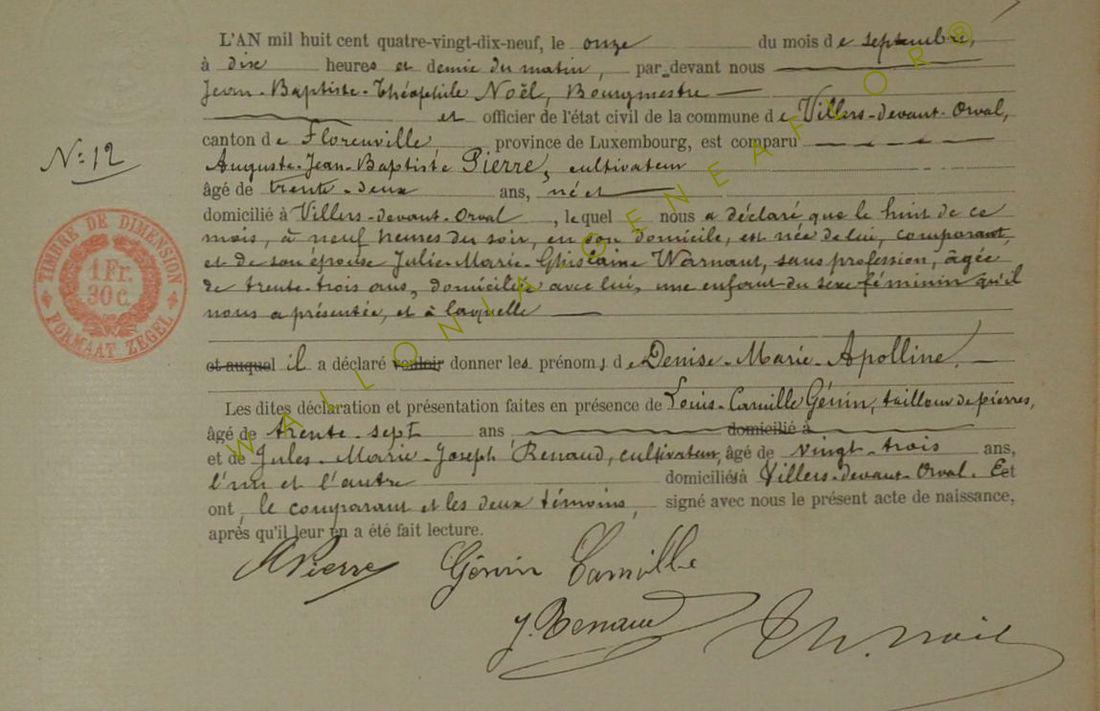 L'AN mil huit cent quatre-vingt-dix-neuf, le onze du mois de septembre,
à dix heures et demie du matin, par devant nous
Jean-Baptiste-Théophile Noël, Bourgmestre
et officier de l'état civil de la commune de Villers-devant-Orval,
canton de Florenville, province de Luxembourg, est comparu
Auguste-Jean-Baptiste Pierre, cultivateur
N:12
âgé de trente-deux ans, né et
domicilié à Villers-devant-Orval, lequel nous a déclaré que le huit de ce
mois, à neuf heures du soir, en son domicile, est née de lui, comparant,
et de son épouse Julie-Marie-Ghislaine Warnant, sans profession, âgée
de trente-trois ans, domiciliée avec lui, une enfant du sexe féminin qu'il
nous a présentée, et à laquelle
et auquel il a déclaré vouloir donner les prénoms de Denise-Marie-Apolline.
Les dites déclaration et présentation faites en présence de Louis-Camille Génin, tailleur de pierres,
âgé de trente-sept ans domicilié à
et de Jules-Marie-Joseph Renaud, cultivateur, âgé de vingt-trois ans,
l'un et l'autre domiciliés à Villers-devant-Orval. Et
ont, le comparant et les deux témoins, signé avec nous le présent acte de naissance,
après qu'il leur en a été fait lecture.
APierre Génin Camille
J. Renaud Th. Noël
TIMBRE DE DIMENSION
1 Fr.
30 c.
FORMAAT ZEGEL
WALLONIA GENEAFLOR®